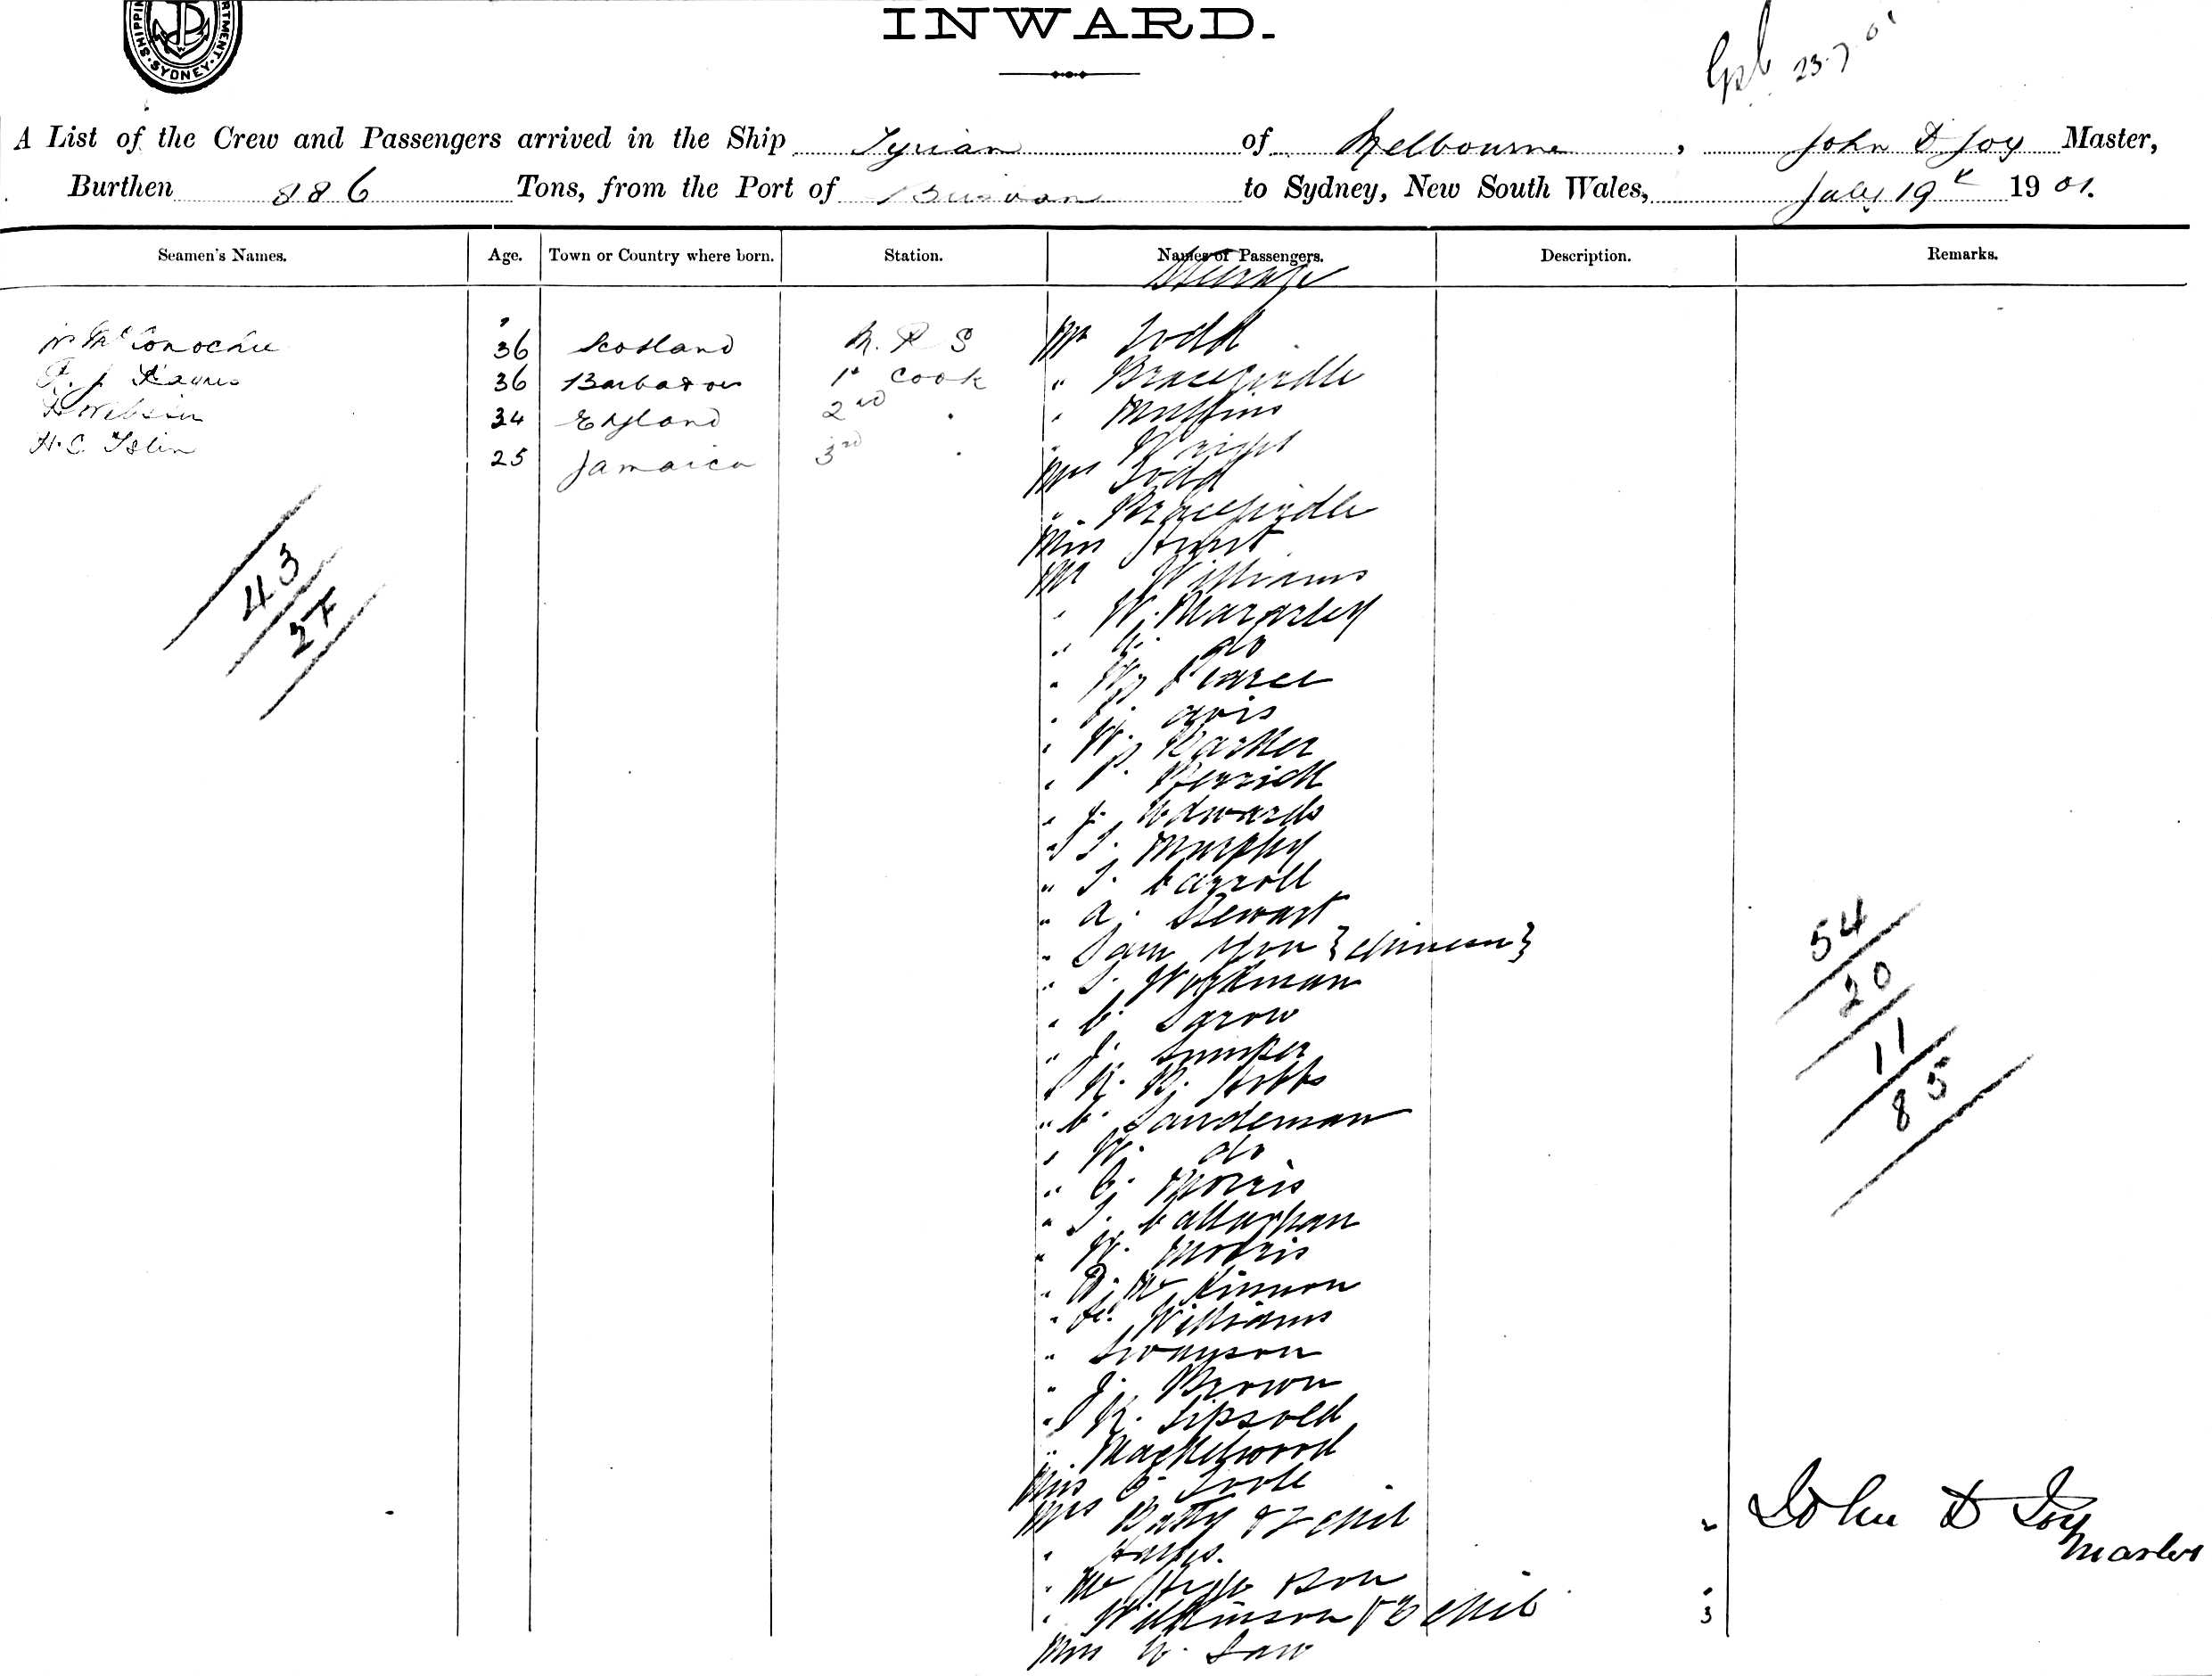 SHIPPING DEPARTMENT. SYDNEY.
INWARD.
23.7.01
A List of the Crew and Passengers arrived in the Ship Tyrian of Melbourne, John D Joy Master,
Burthen 886 Tons, from the Port of Brisbane to Sydney, New South Wales, July 19th 1901.
Seamen's Names. Age. Town or Country where born. Station. Names of Passengers. Description. Remarks.
Steerage
McConochie 36 Scotland M. R S Mr Todd
36 Barbados 1st Cook " Bracegirdle
34 England 2nd " " Mullins
H. C. Islin 25 Jamaica 3rd " " Wright
Mrs Todd
" Bracegirdle
Miss Hurst
Mr Williams
" W. Margarley
" do
" W Pearce
" Avis
" W. Barker
" P. Kerrick
" J. Edwards
" T. Murphy
" T. Carroll
" A. Stewart
" Sam Yon {Chinese}
" T. Workman
" C. Sgrow
" J. Sumper
" R. B. Hobbs
" C. Sandeman
" W. do
" C. Morris
" T. Callaghan
" W. Morris
" D. McKinnon
" Williams
" Swanson
" J. Brown
" R. Lipsold
" Mackelwood
Miss Toole
Mrs Batty & 2 chil 2
" Hayes.
" Mc
" Wilkinson & 3 chil 3
Miss Law
43
27
54
20
11
85
John D Joy
Master